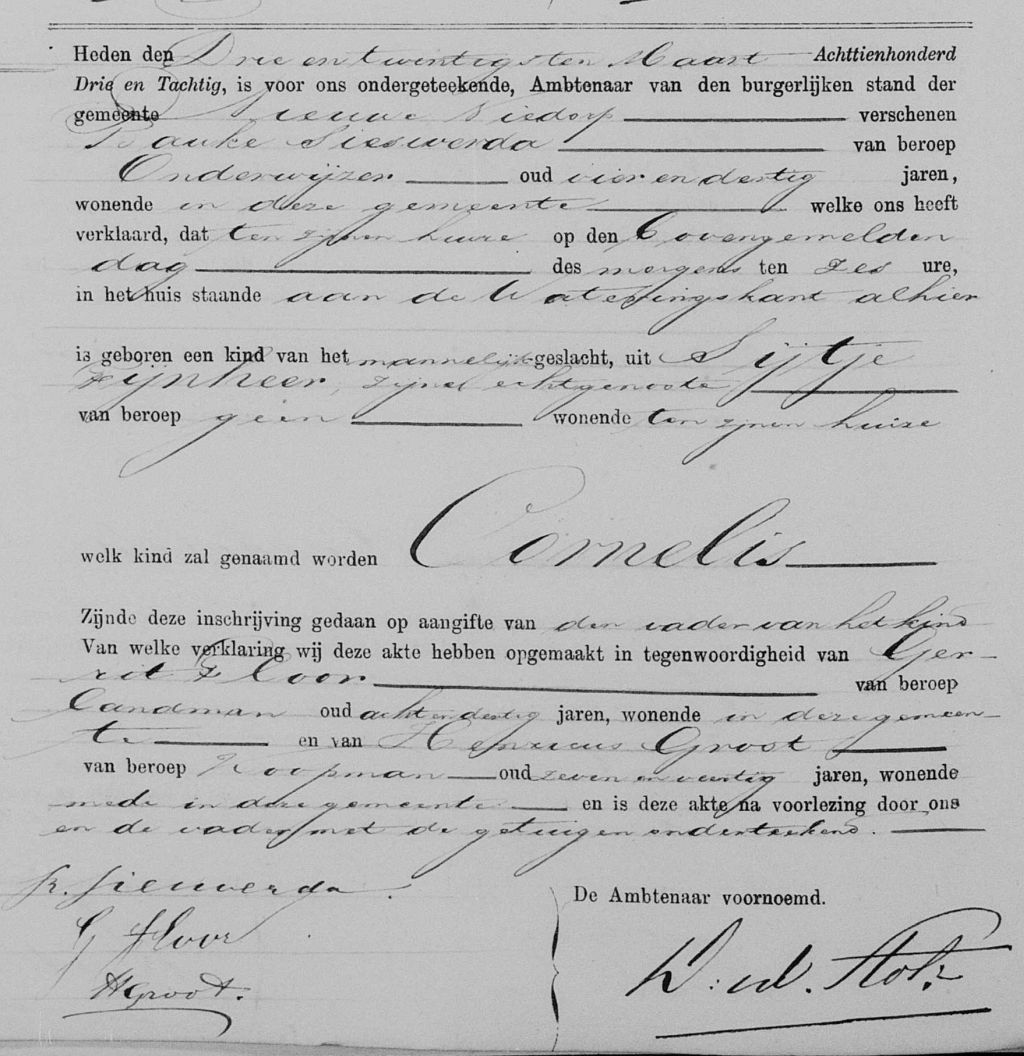 Heden den Drie en twintigsten Maart Achttienhonderd
Drie en Tachtig, is voor ons ondergeteekende, Ambtenaar van den burgerlijken stand der
gemeente Nieuwe Niedorp verschenen
Bauke Sieswerda van beroep
Onderwijzer oud vier en dertig jaren,
wonende in deze gemeente welke ons heeft
verklaard, dat ten zijnen huize op den bovengemelden
dag des morgens ten zes ure,
in het huis staande aan de Wateringskant alhier
is geboren een kind van het mannelijk geslacht, uit Sijtje
Zijnheer, zijne echtgenoote,
van beroep geen wonende ten zijnen huize
welk kind zal genaamd worden Cornelis
Zijnde deze inschrijving gedaan op aangifte van den vader van het kind
Van welke verklaring wij deze akte hebben opgemaakt in tegenwoordigheid van Ger-
rit Floor van beroep
Landman oud acht en dertig jaren, wonende in deze gemeen-
te en van Henricus Groot
van beroep Koopman oud zeven en veertig jaren, wonende
mede in deze gemeente en is deze akte na voorlezing door ons
en de vader met de getuigen onderteekend.
Sieswerda
G Floor
H Groot.
De Ambtenaar voornoemd.